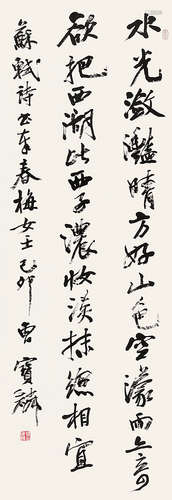 水光潋灩晴方好山色空濛雨亦奇
欲把西湖比西子濃妝淡抹總相宜
蘇軾詩書奉春梅女士己卯曹寶麟